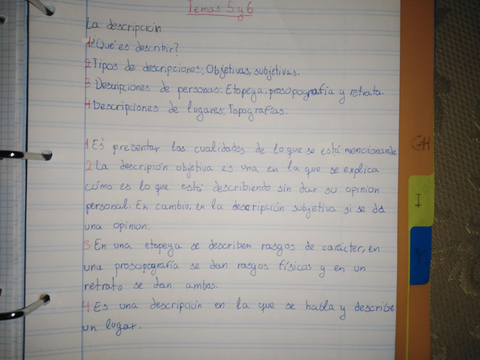 Temas 5 y 6
La descripción
1 ¿Qué es describir?
2 Tipos de descripciones; Objetivas, subjetivas.
3 Descripciones de personas: Etopeya, prosopografía y retrato.
4 Descripciones de lugares; Topografías.
1 Es presentar las cualidades de lo que se está mencionando
2 La descripción objetiva es una en la que se explica
cómo es lo que está describiendo sin dar su opinion
personal. En cambio, en la descripción subjetiva si se da
una opinion.
3 En una etopeya se describen rasgos de carácter, en
una prosopografía se dan rasgos físicos y en un
retrato se dan ambos.
4 Es una descripción en la que se habla y describe
un lugar.
I